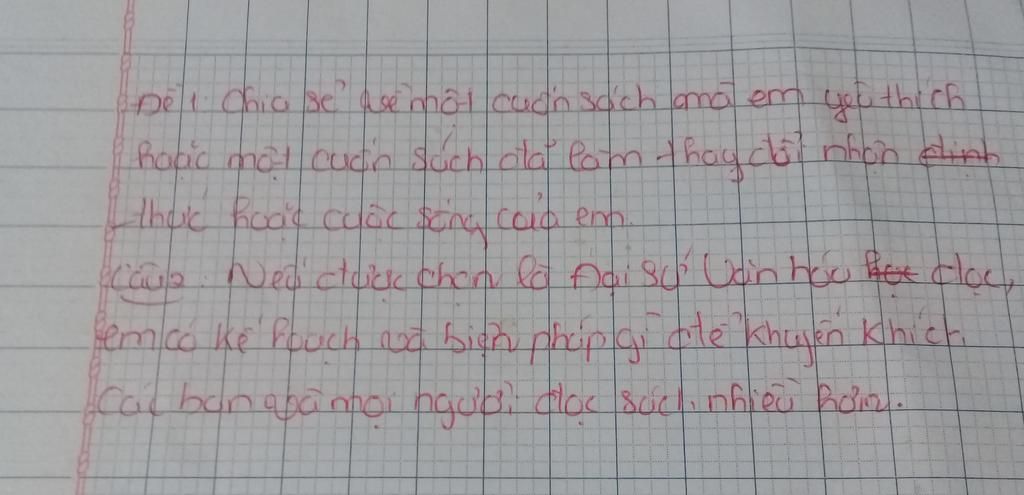 Đề 1. Chia sẻ về một cuốn sách mà em yêu thích
hoặc một cuốn sách đã làm thay đổi nhận định
thức hoặc cuộc sống của em.
Câu 2. Nếu được chọn là đại sứ văn hóa đọc,
em có kế hoạch và biện pháp gì để khuyến khích
các bạn và mọi người đọc sách nhiều hơn.